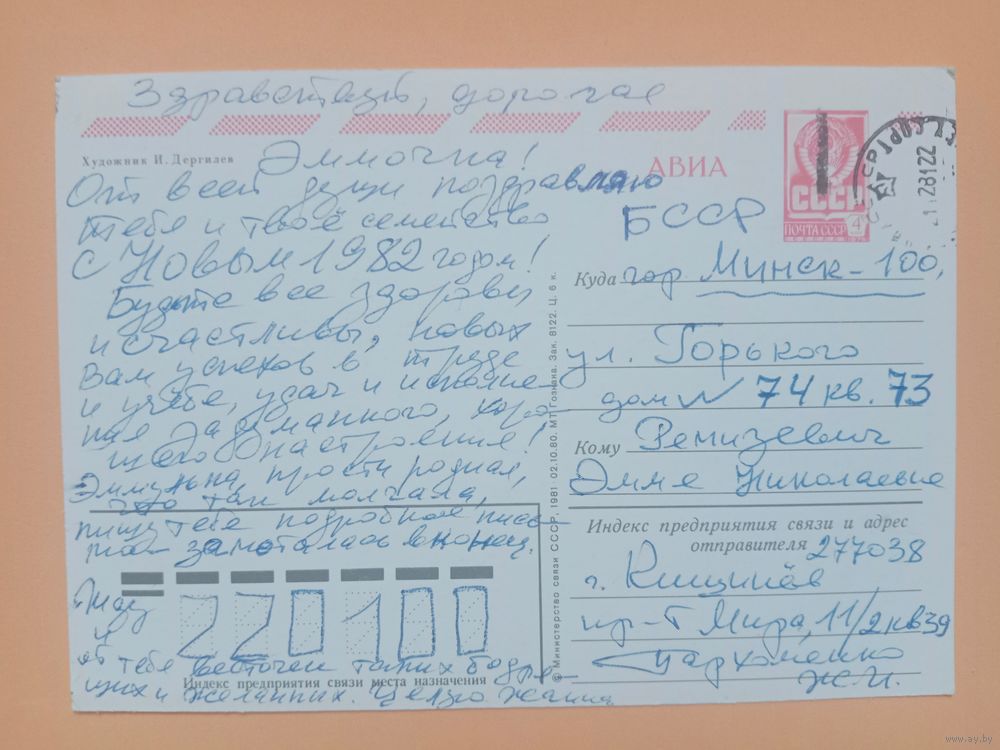 Здравствуй, дорогая
Художник И. Дергилев
Эммочка!
От всей души поздравляю
тебя и твоё семейство
с Новым 1982 годом!
Будьте все здоровы
и счастливы, новых
Вам успехов в труде
и учёбе, удач и исполне-
ния задуманного, хоро-
шего настроения!
Эммушка, прости родная,
что так молчала,
пишу тебе подробное пись-
мо - замоталась вконец.
Жду
от тебя весточек таких бодря-
щих и желанных. Целую Жанна
220100
Индекс предприятия связи места назначения
© Министерство связи СССР, 1981 02.10.80. МТ Гознака. Зак. 8122. Ц. 6 к.
АВИА
СССР
ПОЧТА СССР
4
281122
БССР
Куда гор Минск-100,
ул. Горького
дом N 74 кв. 73
Кому Ремизевич
Эмме Николаевне
Индекс предприятия связи и адрес
отправителя 277038
г. Кишинёв
пр-т Мира, 11/2 кв 39
Пархоменко
Ж.И.
www.ay.by